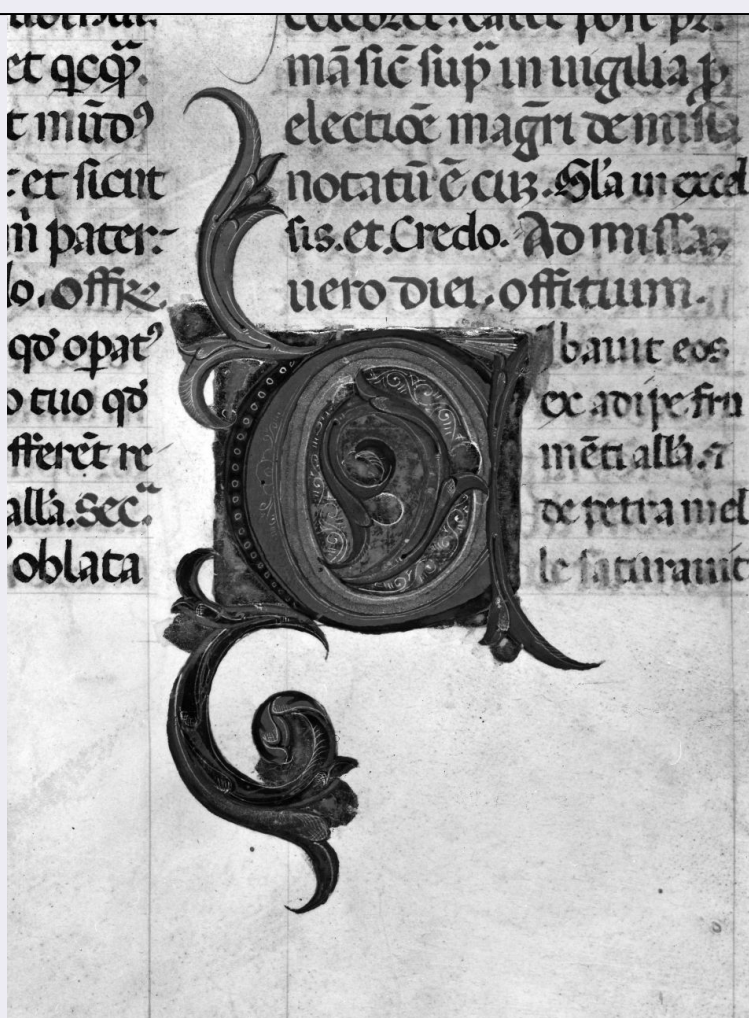 et qcq᷒.
t mūdꝰ
et sicut
pater:
offr̄e
qđ opatꝰ
tuo qđ
fferēt re
alla. Sec̄.
oblata
mā sic̄ sup̄ in uigilia
electiōe magr̄i de missa
notatū ē cuȝ. Gl'a in excel
sis. et Credo. Ad missaȝ
uero diei. offitium.
Cibauit eos
ex adipe fru
mēti alla. ⁊
de petra mel
le saturauit